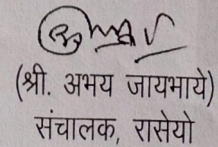 (श्री. अभय जायभाये)
संचालक, रासेयो